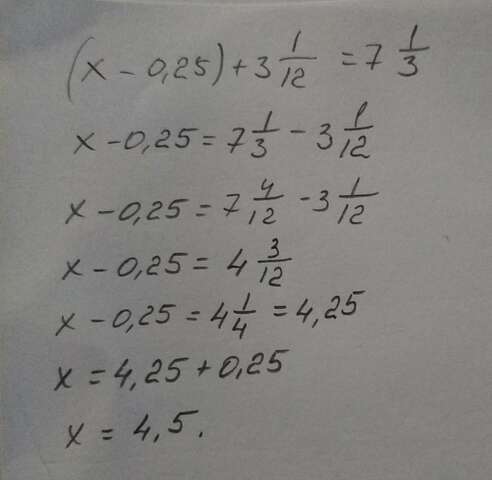 (x - 0,25) + 3 1/12 = 7 1/3
x - 0,25 = 7 1/3 - 3 1/12
x - 0,25 = 7 4/12 - 3 1/12
x - 0,25 = 4 3/12
x - 0,25 = 4 1/4 = 4,25
x = 4,25 + 0,25
x = 4,5.